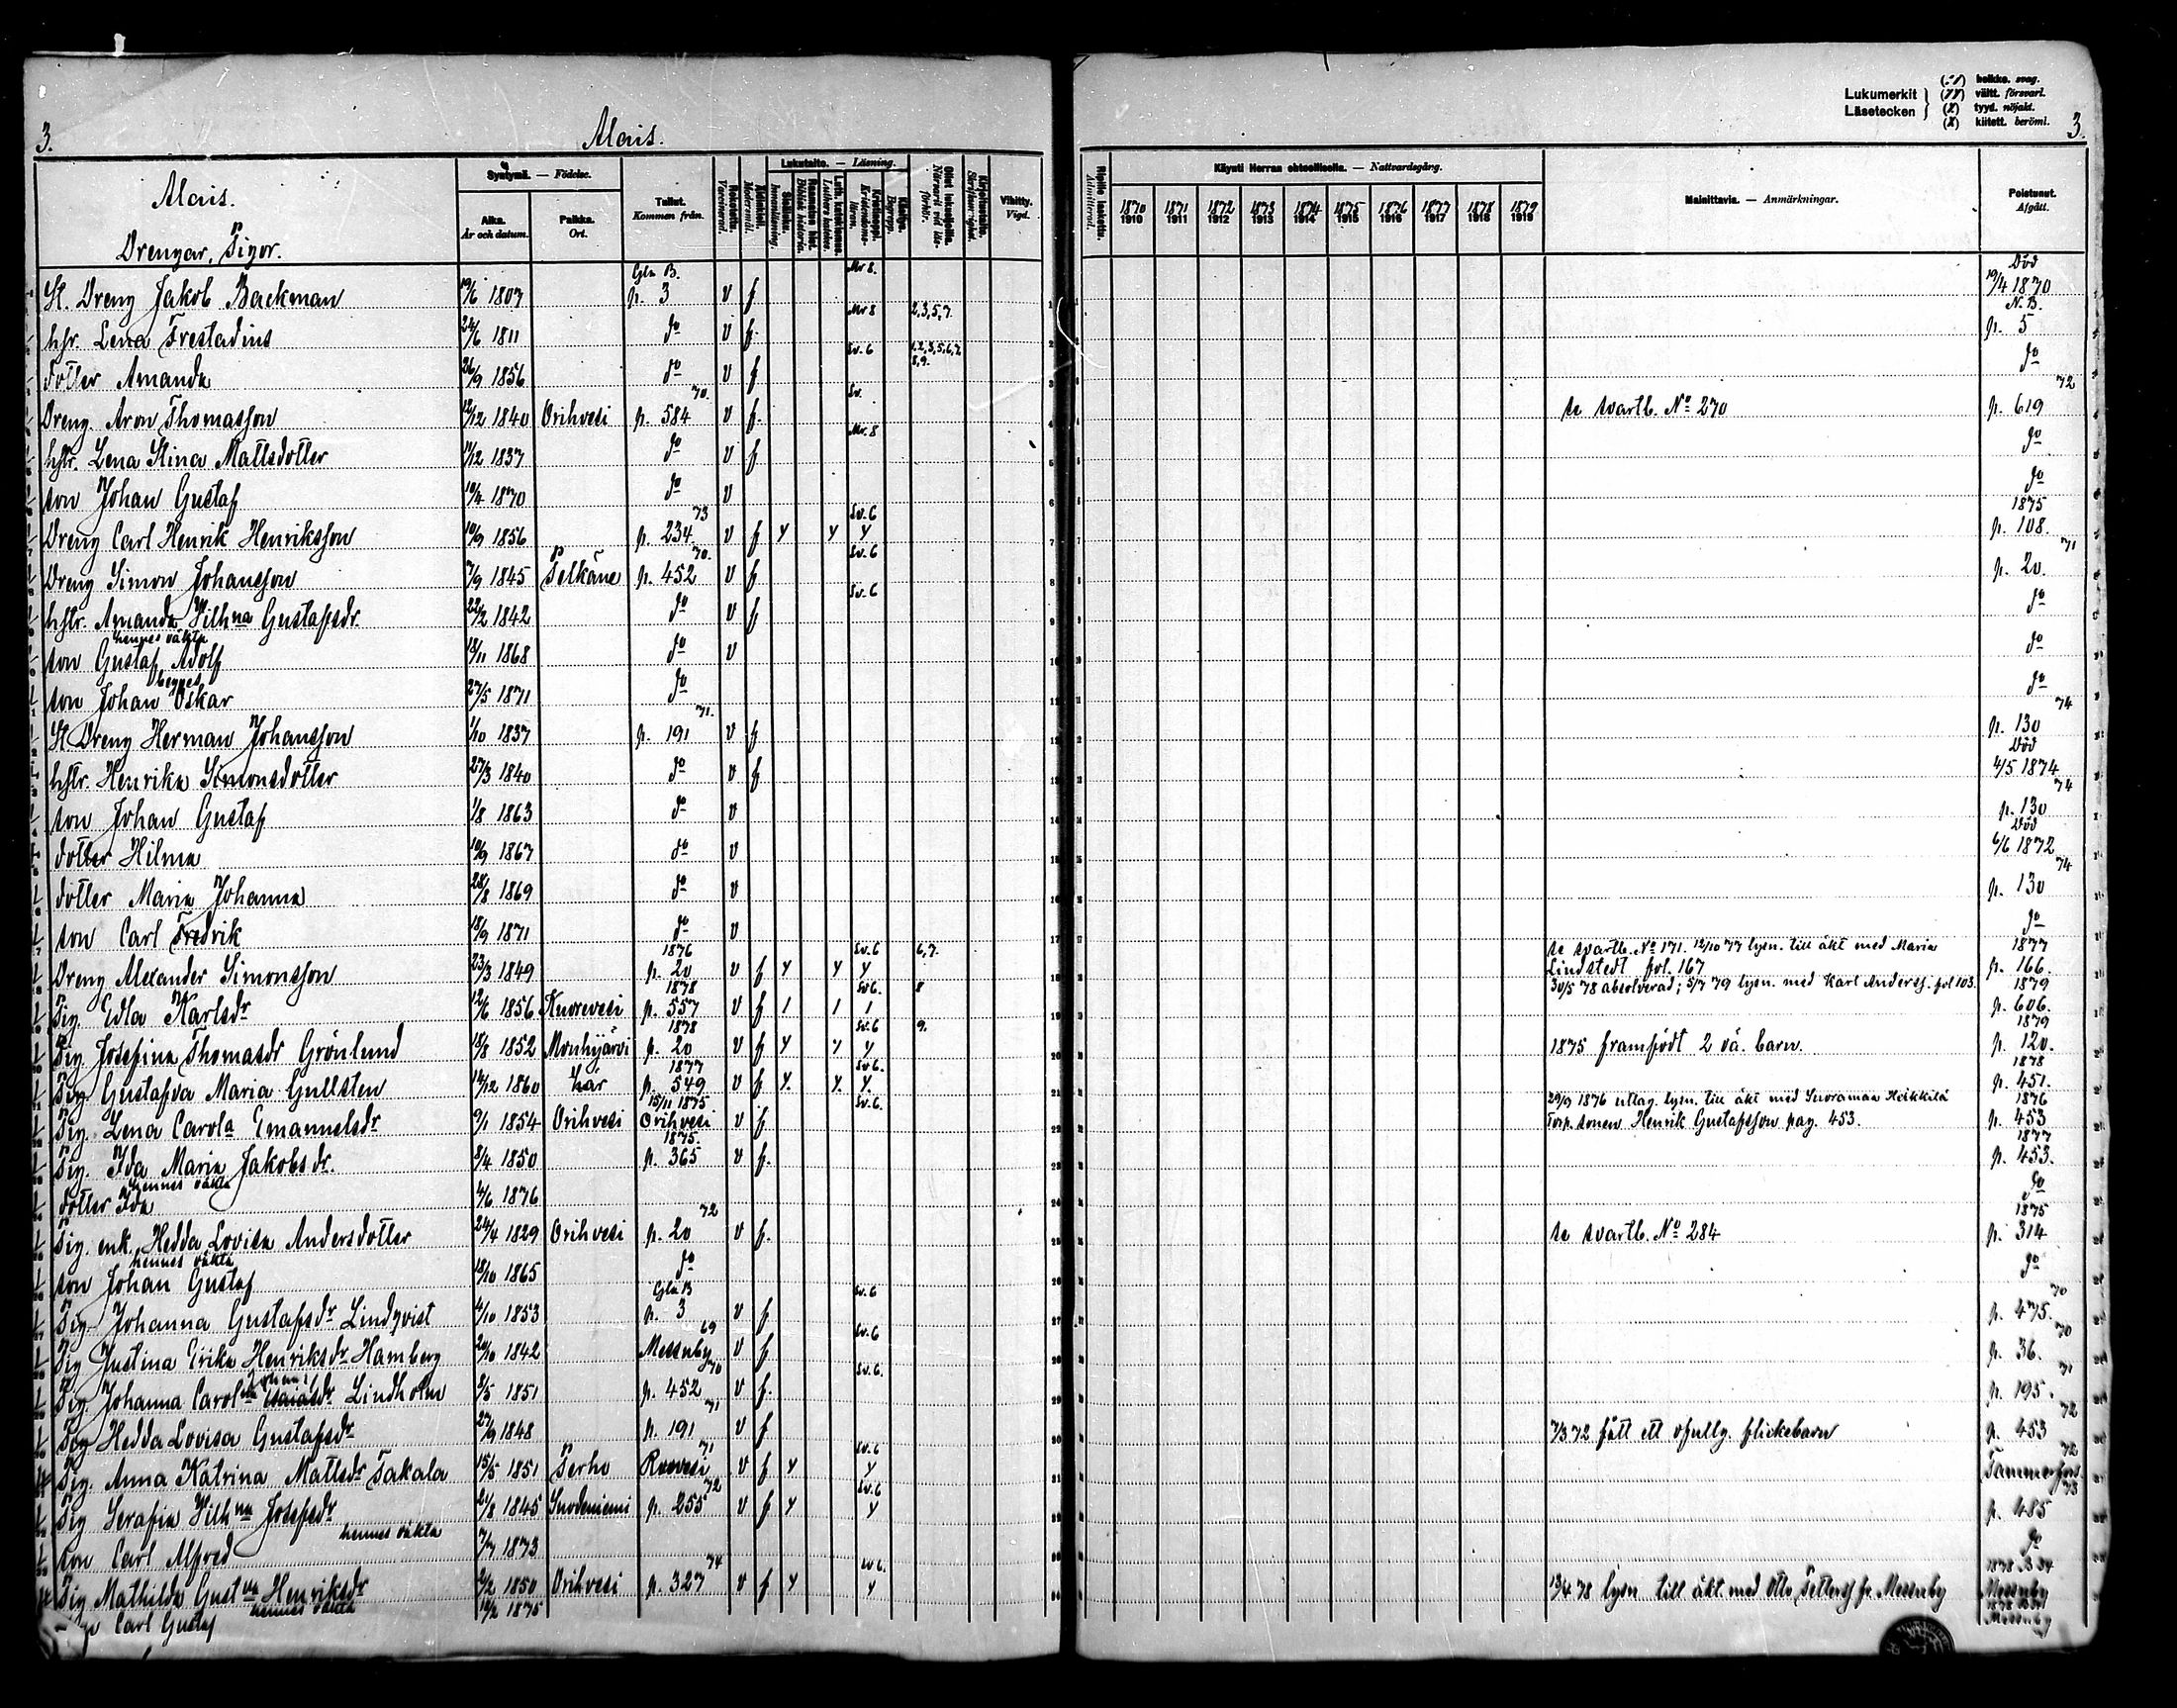 Lukumerkit
Läsetecken
heikko. svag.
vältt. försvarl.
tyyd. nöjakt.
kiitett. beröml.
3.
Alais.
3.
Alais.
Drengar, Pigor.
Syntymä. — Födelse.
Aika.
År och datum.
Paikka.
Ort.
Tullut.
Kommen från.
Rokotettu.
Vaccinerad.
Äidinkieli.
Modersmål.
Lukutaito. — Läsning.
Sisäluku.
Innanläsning.
Raamatun hist.
Biblisk historia.
Luth. katekismus.
Luthers katekes.
Kristinoppi.
Kristendomsläran.
Käsitys.
Begrepp.
Ollut lukusilla.
Närvarit vid läsförhör.
Kirjoitustaito.
Skrifkunnighet.
Vihitty.
Vigd.
Ripille laskettu.
Admitterad.
Käynti Herran ehtoollisella. — Nattvardsgång.
1870 1871 1872 1873 1874 1875 1876 1877 1878 1879
1910 1911 1912 1913 1914 1915 1916 1917 1918 1919
Mainittavia. — Anmärkningar.
Poistunut.
Afgått.
St. Dreng Jakob Backman 19/6 1807 Gla B. p. 3 v f Mr 8. Död 19/4 1870
hstr. Lena Frestadius 24/6 1811 do v f. Mr 8 2,3,5,7. N. B. p. 5
dotter Amanda 26/9 1856 do v f Sv. 6 1,2,3,5,6,7, 8,9. do
Dreng Aron Thomasson 12/12 1840 Orihvesi p. 584 70. v f. Sv. se svartb. No 270 p. 619 72
hstr. Lena Stina Mattsdotter 11/12 1837 do v f Mr. 8 do
son Johan Gustaf 10/4 1870 do v do
Dreng Carl Henrik Henriksson 10/9 1856 p. 234 73 v f Y Y Y Sv. 6 1875 p. 108.
Dreng Simon Johansson 7/9 1845 Pelkäne p. 452 70. v f Sv. 6 p. 20. 71
hstr. Amanda Vilhna Gustafsdr. 22/2 1842 do v f Sv. 6 do
hennes oäkta
son Gustaf Adolf 18/11 1868 do v do
begges
son Johan Oskar 27/5 1871 do do
St Dreng Herman Johansson 1/10 1837 p. 191 71. v f p. 130 74
hstr. Henrika Simonsdotter 27/3 1840 do v f Död 4/5 1874
son Johan Gustaf 1/8 1863 do v p. 130 74
dotter Hilma 10/9 1867 do v Död 6/6 1872
dotter Maria Johanna 28/8 1869 do v p. 130 74
son Carl Fredrik 18/9 1871 do v do
Dreng Alexander Simonsson 23/3 1849 1876 p. 20 v f Y Y Y Sv. 6 6,7. se svartb. No 171. 12/10 77 lysn. till äkt med Maria Lindstedt fol. 167 1877 p. 166.
Pig. Edla Karlsdr 12/6 1856 Kuorevesi 1878 p. 557 v f 1 1 1 Sv 6. 8 30/5 78 absolverad; 5/7 79 lysn. med Karl Anderss. fol 103. 1879 p. 606.
Pig. Josefina Thomasdr Grönlund 18/8 1852 Mouhijärvi 1878 p. 20 v f Y Y Y Sv. 6 9. 1875 framfödt 2 oä. barn. 1879 p. 120.
Pig. Gustafva Maria Gullsten 14/12 1860 här 1877 p. 549 v f Y. Y. Y. Sv 6. 1878 p. 451.
Pig. Lena Carola Emanuelsdr 9/1 1854 Orihvesi 15/11 1875 Orihvesi v f. Sv. 6. 29/9 1876 uttag. lysn. till äkt med Suoraman Heikkilä Torp. sonen Henrik Gustafsson pag. 453. 1876 p. 453
Pig. Ida Maria Jakobsdr. 8/4 1850 1875. p. 365 v f. 1877 p. 453.
hennes oäkta
dotter Ida 4/6 1876 do
Pig. enk. Hedda Lovisa Andersdotter 24/4 1829 Orihvesi p. 20 72 v f. se svartb. No 284 1875 p. 314
hennes oäkta
son Johan Gustaf 18/10 1865 do do
Pig. Johanna Gustafsdr Lindqvist 4/10 1853 Gla B p. 3 v f Sv. 6 p. 475. 70
Pig Justina Erika Henriksdr Hamberg 20/10 1842 Messuby 69 v f Sv. 6 p. 36. 70
Pig Johanna Carolna Esaiasdr Lindholm 8/5 1851 p. 452 70 v f. Sv. 6. p. 195. 71
Pig Hedda Lovisa Gustafsdr 27/9 1848 p. 191 71 v f 7/3 72 fått ett ofullg. flickebarn p. 453 72
Pig. Anna Katrina Mattsdr Takala 15/5 1851 Perho Ruovesi 71 v f Y Y Sv. 6 Tammerfors 72
Pig Serafia Vilhna Josefsdr 21/8 1845 Suodeniemi p. 255 72 v f Y Y Sv. 6 p. 485 73
hennes oäkta
son Carl Alfred 7/7 1873 do
Pig Mathilda Gustva Henriksdr 2/2 1850 Orihvesi p. 327 74 v f Y Y Sv 6. 13/4 78 lysn. till äkt. med Otto Petterss fr. Messuby 1878 B 34 Messuby
hennes oäkta
Carl Gustaf 18/2 1875 Messuby